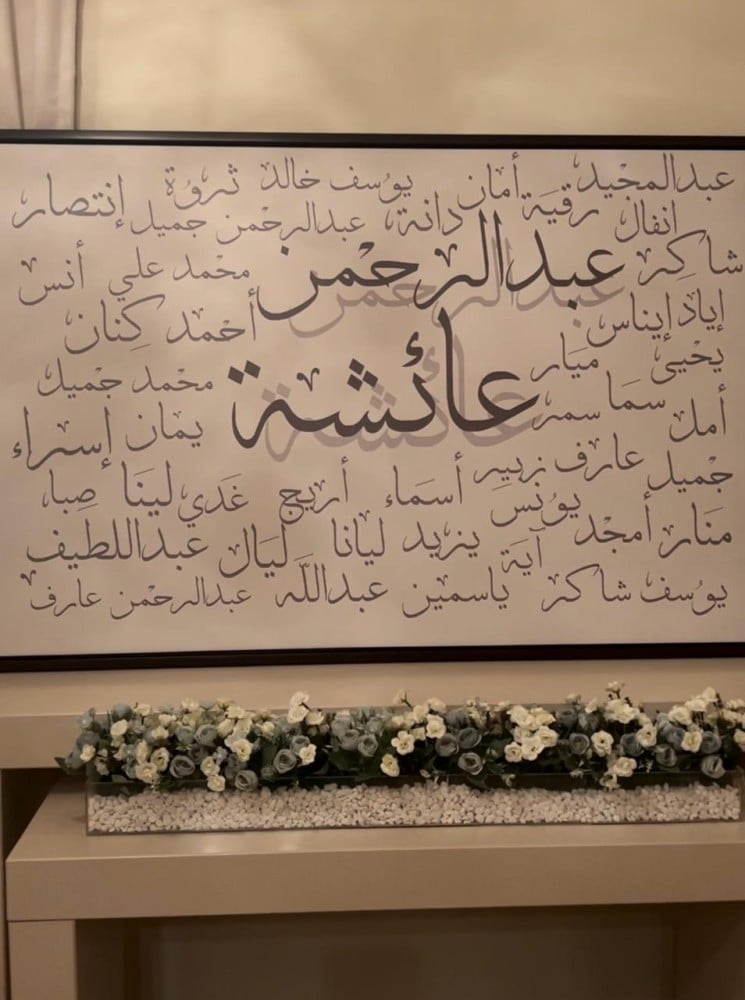 عبدالمجيد أمان يوسف خالد ثروة إنتصار
انفال رقية دانة عبدالرحمن جميل
شاكر عبدالرحمن محمد علي أنس
إياد إيناس أحمد كنان
يحيى ميار عائشة محمد جميل
أمل سما سمر يمان إسراء
جميل عارف زبير أسماء أريج غدي لينا صبا
منار أمجد يونس يزيد ليانا ليان عبداللطيف
يوسف شاكر آية ياسمين عبدالله عبدالرحمن عارف